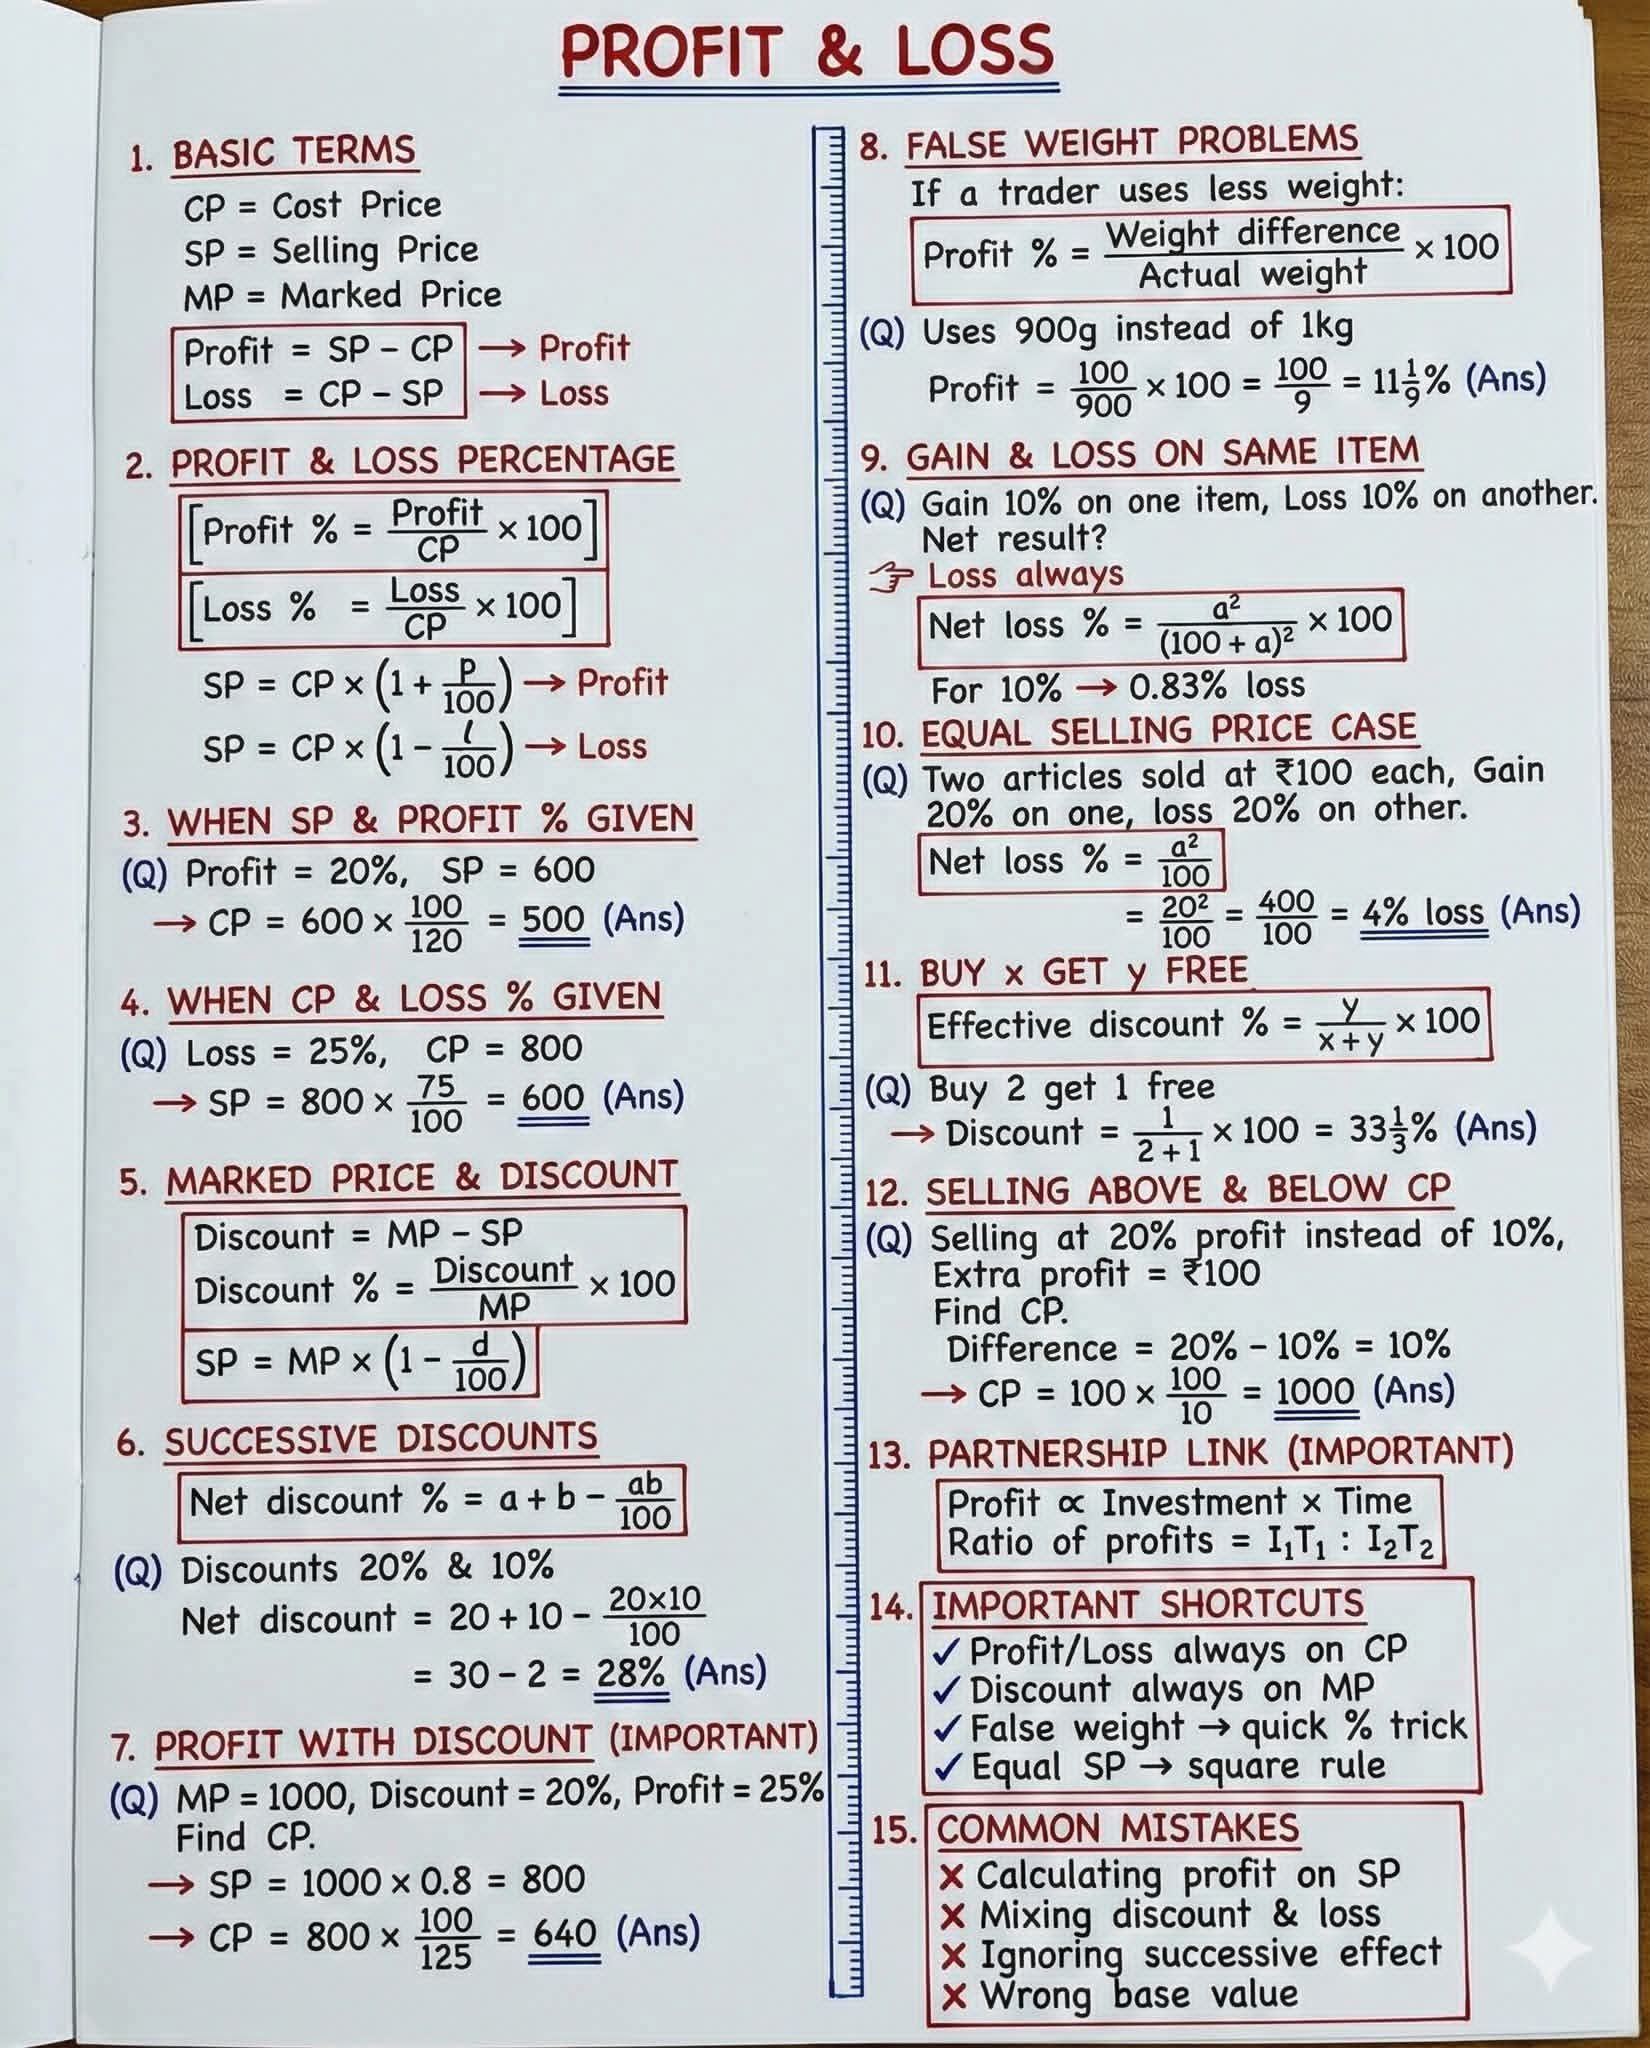 PROFIT & LOSS
1. BASIC TERMS
CP = Cost Price
SP = Selling Price
MP = Marked Price
Profit = SP – CP → Profit
Loss = CP – SP → Loss
2. PROFIT & LOSS PERCENTAGE
[Profit % = Profit/CP × 100]
[Loss % = Loss/CP × 100]
SP = CP × (1 + p/100) → Profit
SP = CP × (1 – l/100) → Loss
3. WHEN SP & PROFIT % GIVEN
(Q) Profit = 20%, SP = 600
→ CP = 600 × 100/120 = 500 (Ans)
4. WHEN CP & LOSS % GIVEN
(Q) Loss = 25%, CP = 800
→ SP = 800 × 75/100 = 600 (Ans)
5. MARKED PRICE & DISCOUNT
Discount = MP – SP
Discount % = Discount/MP × 100
SP = MP × (1 – d/100)
6. SUCCESSIVE DISCOUNTS
Net discount % = a + b – ab/100
(Q) Discounts 20% & 10%
Net discount = 20 + 10 – 20×10/100
= 30 – 2 = 28% (Ans)
7. PROFIT WITH DISCOUNT (IMPORTANT)
(Q) MP = 1000, Discount = 20%, Profit = 25%
Find CP.
→ SP = 1000 × 0.8 = 800
→ CP = 800 × 100/125 = 640 (Ans)
8. FALSE WEIGHT PROBLEMS
If a trader uses less weight:
Profit % = Weight difference/Actual weight × 100
(Q) Uses 900g instead of 1kg
Profit = 100/900 × 100 = 100/9 = 11 1/9% (Ans)
9. GAIN & LOSS ON SAME ITEM
(Q) Gain 10% on one item, Loss 10% on another.
Net result?
☞ Loss always
Net loss % = a²/(100 + a)² × 100
For 10% → 0.83% loss
10. EQUAL SELLING PRICE CASE
(Q) Two articles sold at ₹100 each, Gain
20% on one, loss 20% on other.
Net loss % = a²/100
= 20²/100 = 400/100 = 4% loss (Ans)
11. BUY x GET y FREE
Effective discount % = y/x + y × 100
(Q) Buy 2 get 1 free
→ Discount = 1/2 + 1 × 100 = 33 1/3% (Ans)
12. SELLING ABOVE & BELOW CP
(Q) Selling at 20% profit instead of 10%,
Extra profit = ₹100
Find CP.
Difference = 20% – 10% = 10%
→ CP = 100 × 100/10 = 1000 (Ans)
13. PARTNERSHIP LINK (IMPORTANT)
Profit ∝ Investment × Time
Ratio of profits = I₁T₁ : I₂T₂
14. IMPORTANT SHORTCUTS
✓ Profit/Loss always on CP
✓ Discount always on MP
✓ False weight → quick % trick
✓ Equal SP → square rule
15. COMMON MISTAKES
✗ Calculating profit on SP
✗ Mixing discount & loss
✗ Ignoring successive effect
✗ Wrong base value